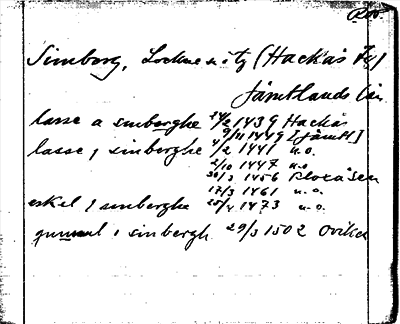 Rev.
Simborg, Lockne sn o tg (Hackås
Jämtlands län
lasse a simberghe 14/2 1439 Hackås
9/11 1449 [Jämtl]
lasse i simberghe 4/2 1441 u.o.
2/10 1447 u.o.
20/3 1456
17/3 1461 u.o.
eskel i simberghe 25/4 1473 u.o.
gunnal i simbergh 29/3 1502 Oviken